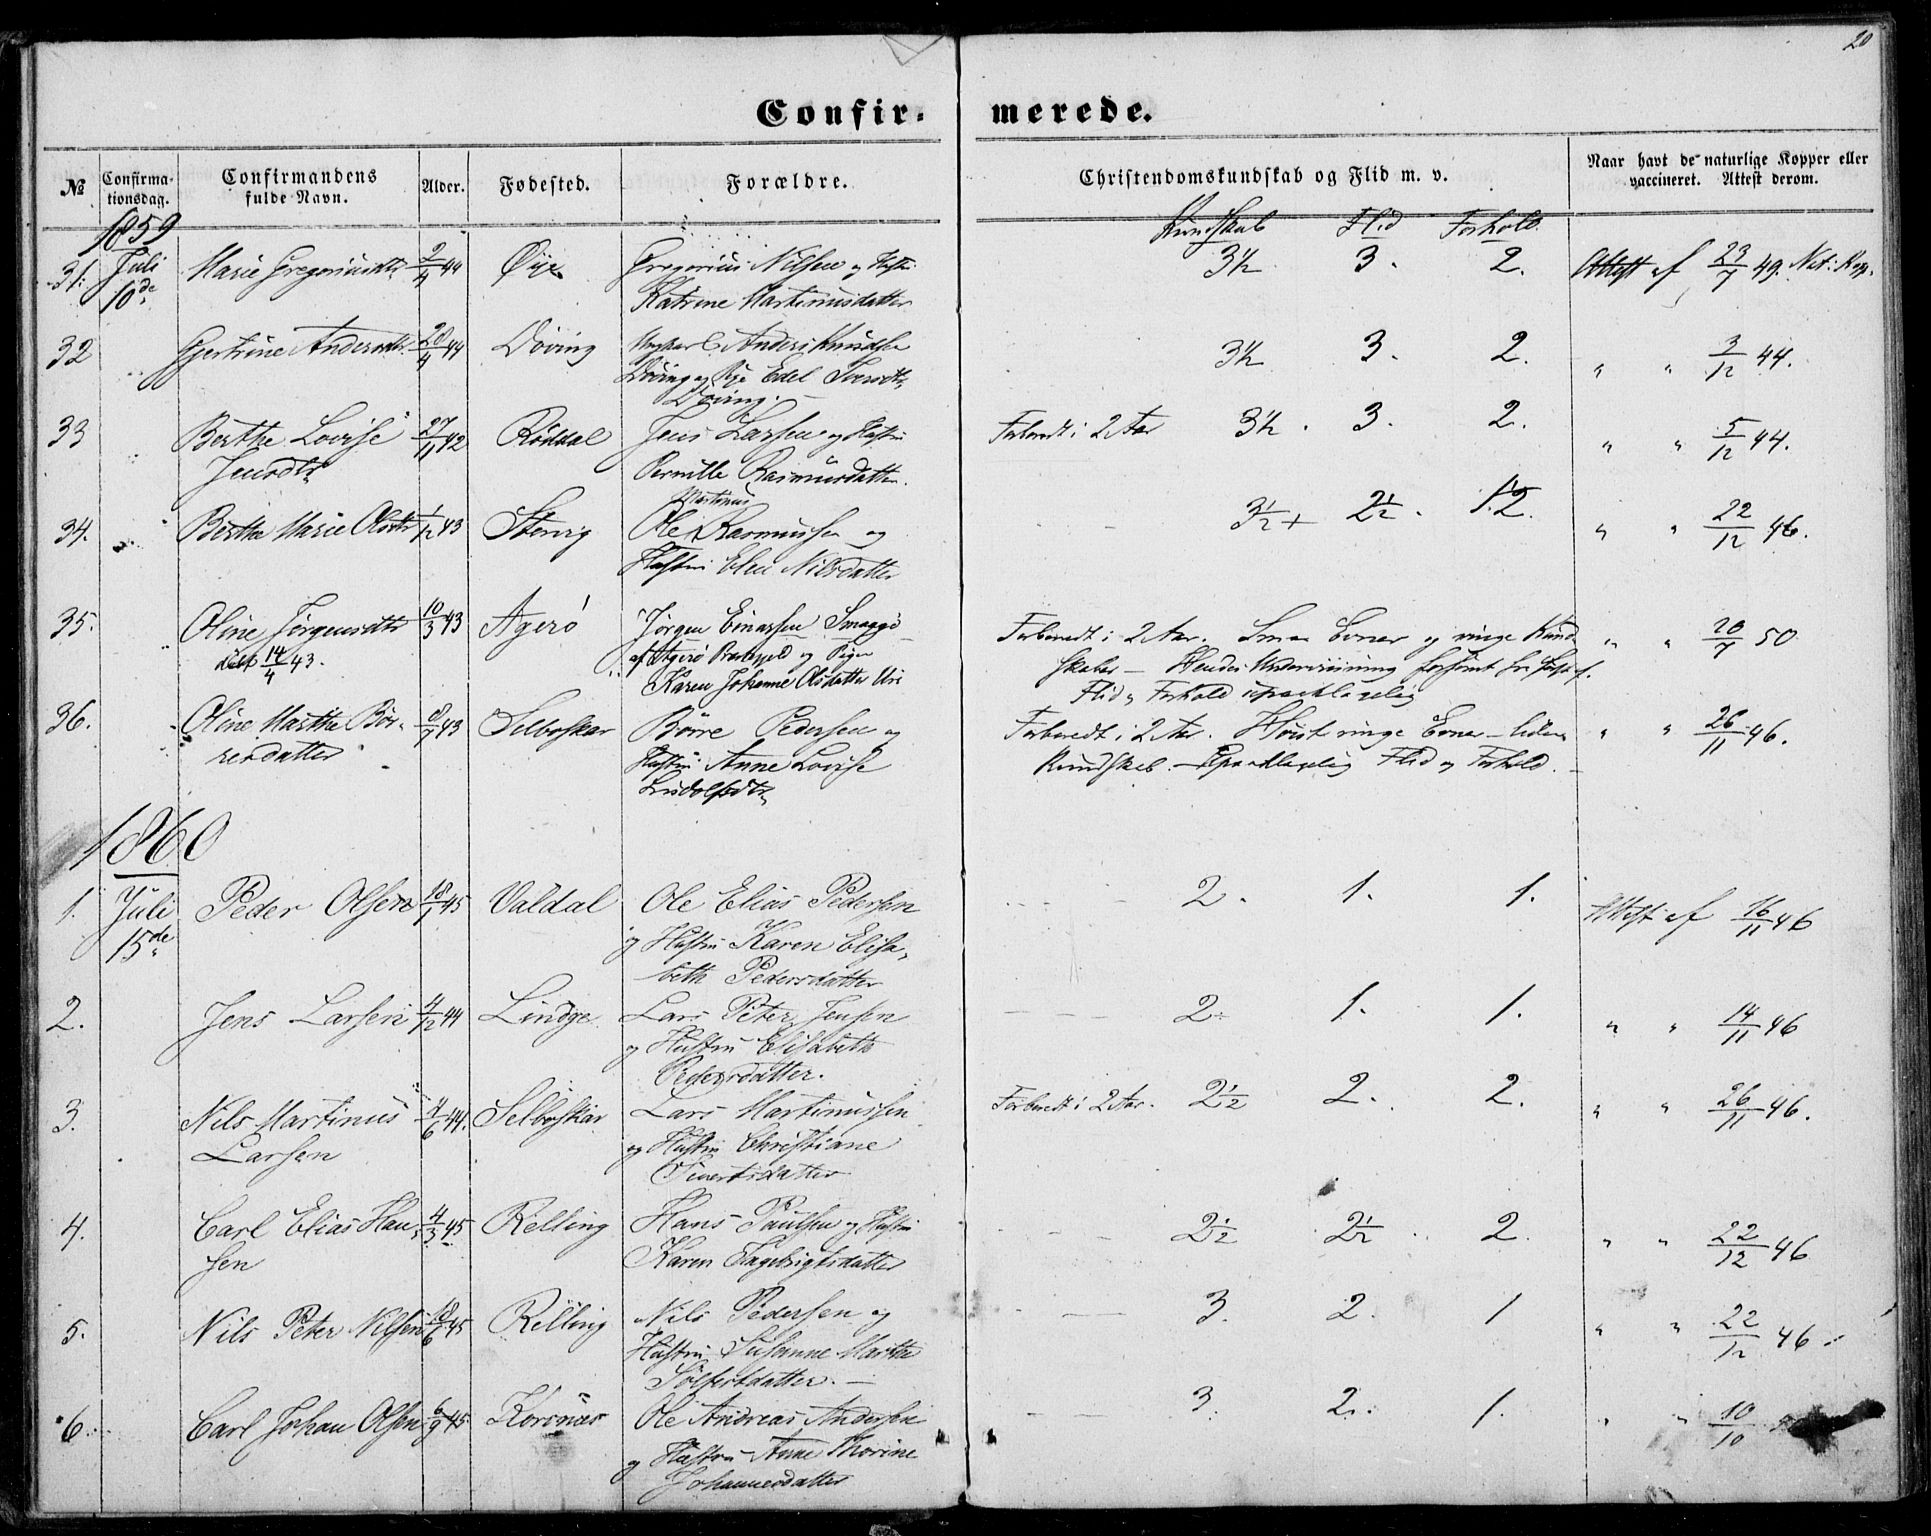 20
Confir-merede.
№ Confirmationsdag. Confirmandens fulde Navn. Alder. Fødested. Forældre. Christendomskundskab og Flid m. v. Naar havt de naturlige Kopper eller vaccineret. Attest derom.
1859
Kundskab Flid Forhold
31. Juli 10de Marie Gregoriusdtr 44 Øye Gregorius Nilsen og Hustru 3½ 3. 2. Attest af 23/7 49. Nat: Kop.
Katrine Martinusdatter
32 Gjertrine Andersdtr. 28/4 44 Døving Ungkarl Anders Knudsen 3½ 3. 2. " " 3/12 44.
Døving og Pige Edel Iversdtr
Døving.
33 Berthe Lovise 27/11 42 Røddal Jens Larsen og Hustru Forberedt i 2 Aar 3½. 3. 2. " " 5/12 44.
Jensdtr Pernille Rasmusdatter.
Martinus
34. Berthe Marie Olsdtr 1/12 43 Ole Rasmussen og 3½+ 2½. 2. " " 22/12 46.
Hustru Elen Nilsdatter
35. Oline Jørgensdtr 10/3 43 Agerø Jørgen Einarsen Smaage Forberedt i 2 Aar. Smaa Evner og ringe Kund- " " 20/7 50
døbt 14/4 43. af Agerø Præstegjeld og Pigen skaber — Hendes Underviisning forsømt
Karen Johanne Olsdatter Uri Flid og Forhold upaaklagelig
36. Oline Marthe Bør- 8/7 43 Selboskar Børre Pedersen og Forberedt i 2 Aar. Høist ringe Evner — liden " " 26/11 46.
resdatter Hustru Anne Lovise Kundskab. — Upaaklagelig Flid og Forhold. —
Ludolfsdtr
1860
1. Juli 15de Peder Olsen 18/1 45 Valdal Ole Elias Pedersen 2. 1. 1. Attest af 16/11 46
og Hustru Karen Elisa-
beth Pedersdatter
2. Jens Larsen 4/12 44 Lindge Lars Peter Jensen 2. 1. 1. " " 14/11 46
og Hustru Elisabeth
Pedersdatter.
3. Nils Martinus 4/6 44. Selboskar Lars Martinussen Forberedt i 2 Aar. 2½ 2. 2. " " 26/11 46.
Larsen og Hustru Christiane
Sivertsdatter
4. Carl Elias Han- 4/3 45 Relling Hans Paulsen og Hustru 2½ 2½. 2. " " 22/12 46
sen Karen Ingebrigtsdatter
5. Nils Peter Nilsen 18/6 45 Relling Nils Pedersen og 3. 2. 1 " " 22/12 46.
Hustru Susanne Marthe
Sølfestdatter. —
6. Carl Johan Olsen 6/9 45 Korsnes Ole Andreas Andersen 3. 2. 1. " " 10/10
og Hustru Anne Thorine
Johannesdatter